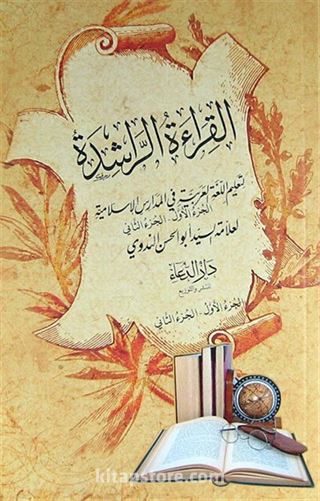 القراءة الراشدة
لتعليم اللغة العربية في المدارس الإسلامية
الجزء الأول - الجزء الثاني
لعلامة السيد أبو الحسن الندوي
دار الدعاء
للنشر والتوزيع
الجزء الأول - الجزء الثاني
kitapstore.com